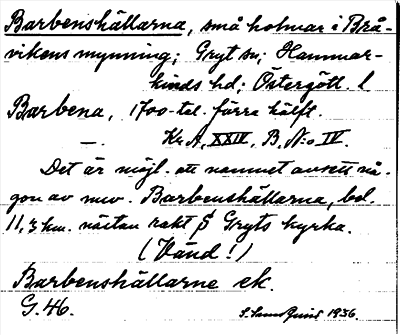 Barbenshällarna, små holmar i Brå-
vikens mynning; Gryt sn; Hammar-
kinds hd; Östergötl. l
Barbena, 1700-tal. förra hälft.
—. Kr. A, XXIV, B, N:o IV.
Det är möjl. att namnet avsett nå-
gon av nuv. Barbenshällarna, bel.
11,3 km. nästan rakt S Gryts kyrka.
(Vänd!)
Barbenshällarne ek.
G. 46.
1936.